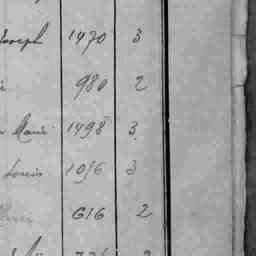 Joseph 1470 3
980 2
Marie 1498 3
Louis 1056 3
616 2